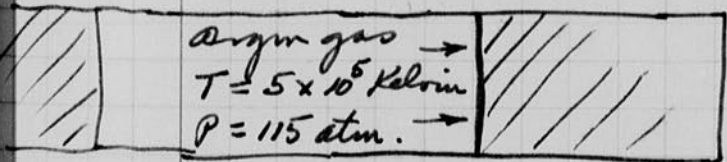 Argon gas →
T = 5 x 10⁵ Kelvin
P = 115 atm. →